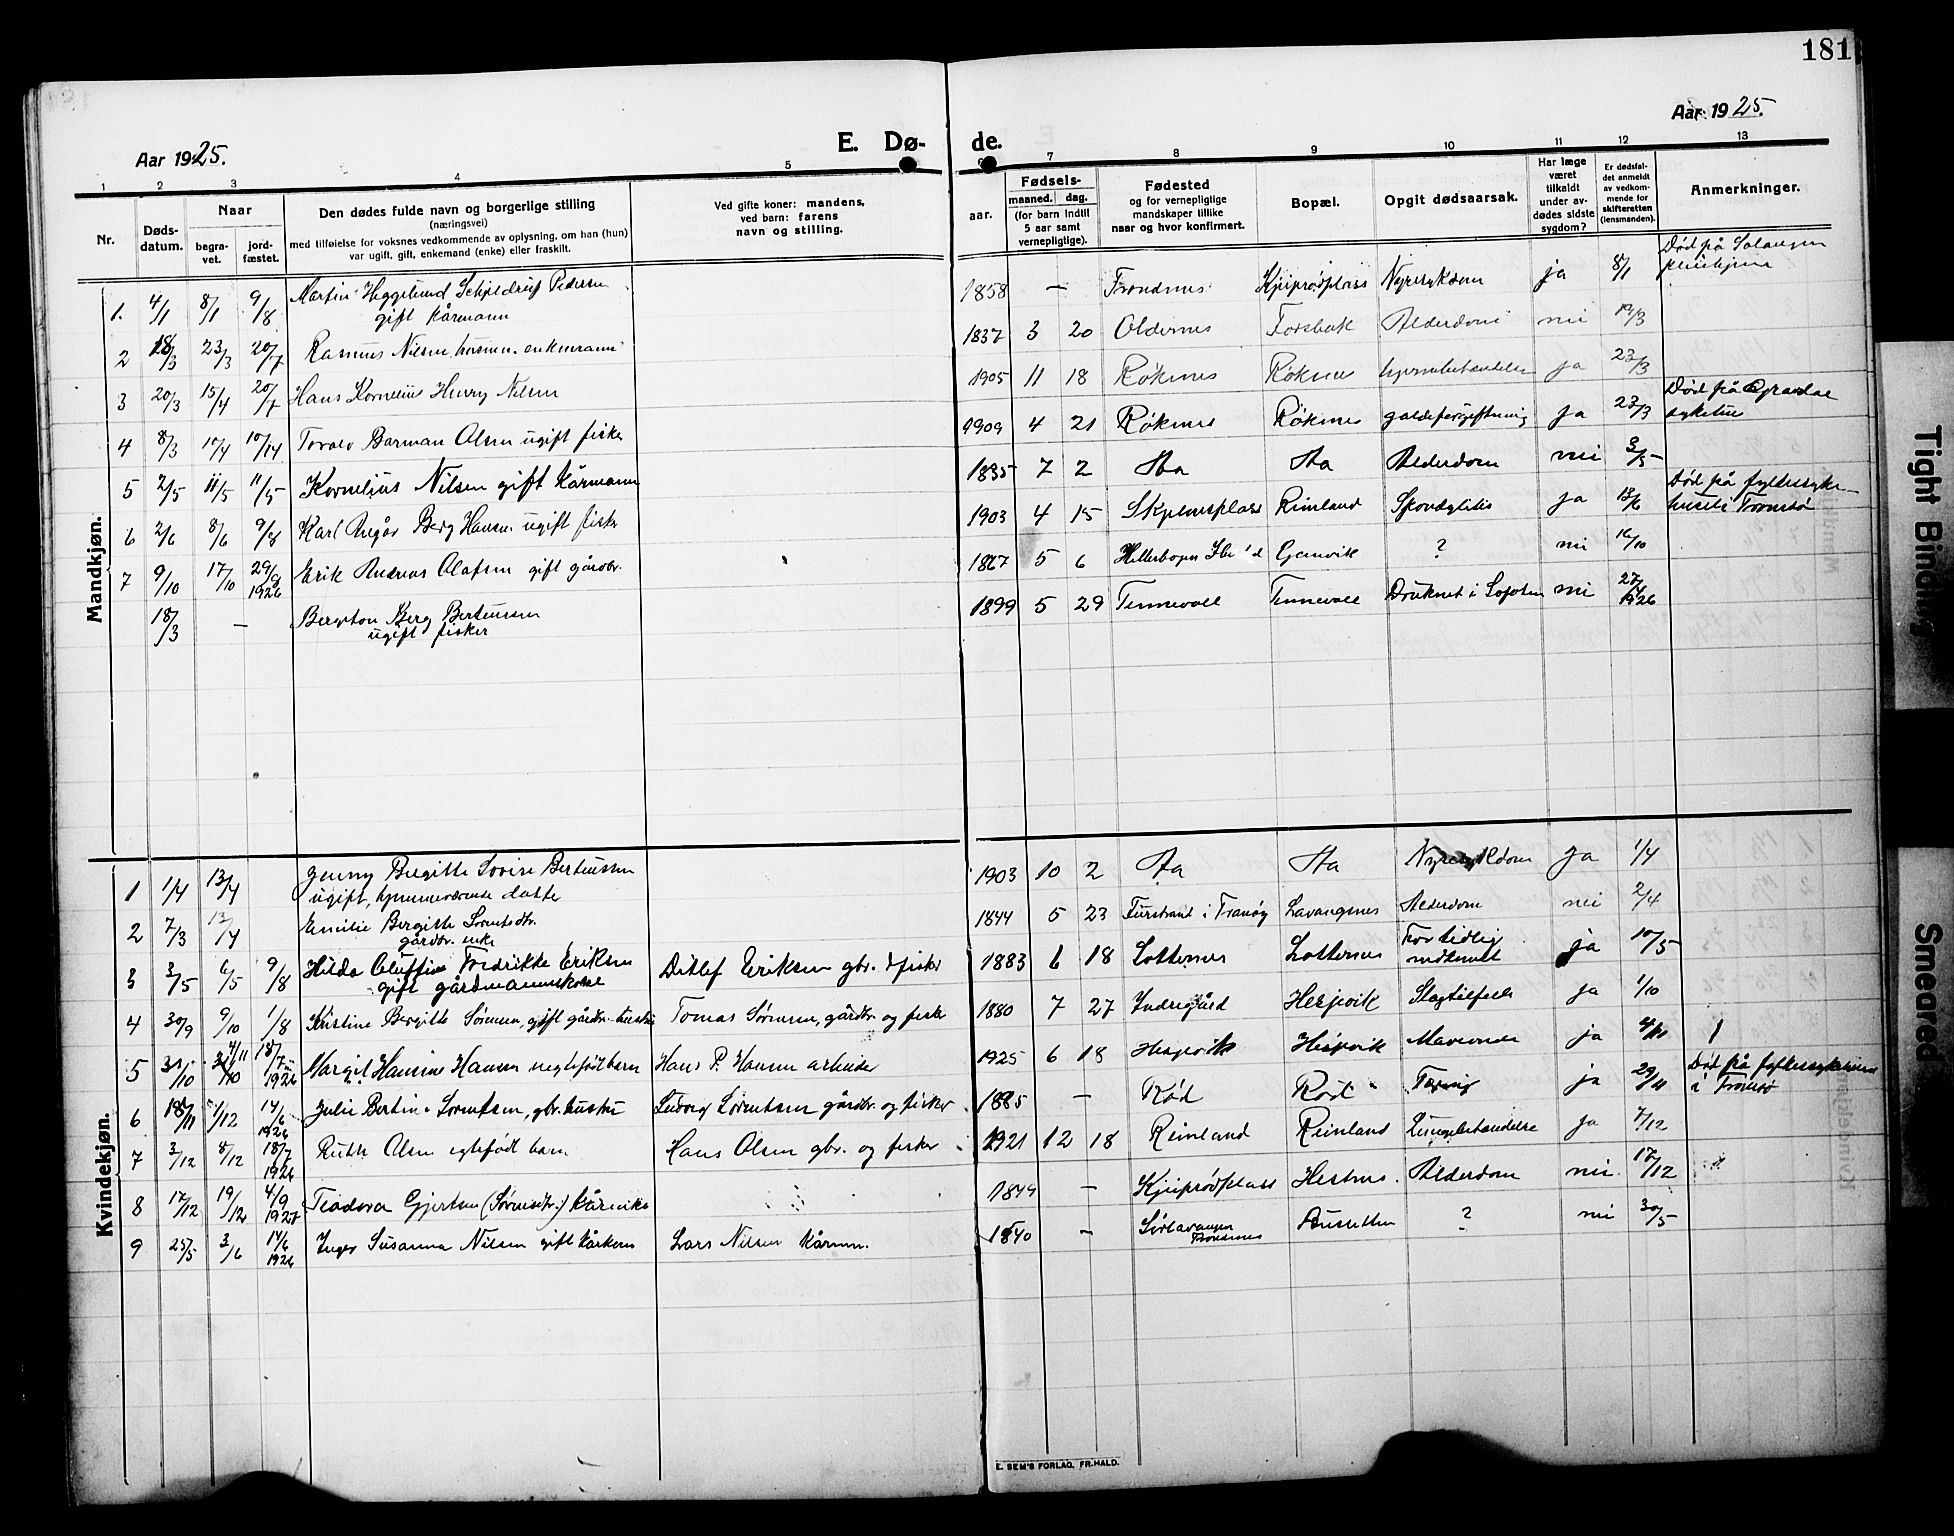 181
Aar 1925.
E. Dø-
de.
Aar 1925.
1 2 3 4 5 7 8 9 10 11 12 13
Nr.
Døds-
datum.
Naar
begra-
vet.
jord-
fæstet.
Den dødes fulde navn og borgerlige stilling
(næringsvei)
med tilføielse for voksnes vedkommende av oplysning, om han (hun)
var ugift, gift, enkemand (enke) eller fraskilt.
Ved gifte koner: mandens,
ved barn: farens
navn og stilling.
aar.
Fødsels-
maaned. dag.
(for barn indtil
5 aar samt
vernepligtige).
Fødested
og for vernepligtige
mandskaper tillike
naar og hvor konfirmert.
Bopæl.
Opgit dødsaarsak.
Har læge
været
tilkaldt
under av-
dødes sidste
sygdom?
Er dødsfal-
det anmeldt
av vedkom-
mende for
skifteretten
(lensmanden).
Anmerkninger.
Mandkjøn.
1. 4/1 8/1 9/8 Martin Heggelund Schjeldrup Pedersen
gift kårmann
1858 — Trondnes Nyresykdom ja 8/1 Død på Salangen
2 18/3 23/3 20/7 Rasmus Nilsen enkemann
1837 3 20 Oldernes Forsbak Alderdom nei 19/3
3 20/3 15/4 20/7 Hans Kornelius Henry Nilsen
1905 11 18 Røknes Røknes ja 23/3
4 8/3 17/4 Olsen ugift fisker
1909 4 21 Røknes Røknes ja 27/3 Død på Gravdal
sykehus
5 2/5 11/5 11/5 Kornelius Nilsen gift kårmann
1835 7 2 Aa Aa Alderdom nei 3/5
6 2/6 8/6 9/8 Karl Berg Hansen ugift fisker
1903 4 15 Reinland ja 13/6 Død på fylkessyke-
huset i Tromsø
7 9/10 17/10 29/8 1926 Erik Andreas Olafsen gift gårdbr.
1867 5 6 Gamvik ? nei 16/10
18/3 — Berg Berteussen
ugift fisker
1899 5 29 Tennevoll Tennevoll Druknet i Lofoten nei 27/4 1926
Kvindekjøn.
1 1/4 13/4 Jenny Birgitte Lovise Berteussen
ugift, hjemmeværende datter
1903 10 2 Aa Aa Nyresykdom ja 1/4
2 7/3 13/4 Emilie Bergitte
gårdbr. enke
1844 5 23 i Tranøy Lavangsnes Alderdom nei 2/4
3 3/5 6/5 9/8 Hilda Oluffine Fredrikke Eriksen
gift gårdmannskone
Ditlef Eriksen gbr. & fisker
1883 6 18 Lotternes Lotternes For tidlig
nedkomst ja 10/5
4 30/9 9/10 1/8 Kristine Bergitte Sørensen, gift gårdbr. hustru
Tomas Sørensen, gårdbr. og fisker
1880 7 27 Indregård Hesjevik Slagtilfelle ja 1/10
5 31/10 4/11 18/7 1926 Margit Hansine Hansen uegtefødt barn
Hans P. Hansen arbeider
1925 6 18 Hesjevik Hesjevik ja 4/11
6 18/11 1/12 14/6 1926 Julie Bertine Lorentsen, gbr. hustru
Ludvig Lorentsen gårdbr. og fisker
1885 — Rød Rød ja 29/11 Død på fylkessykehuset
i Tromsø
7 3/12 8/12 18/7 1926 Ruth Olsen egtefødt barn
Hans Olsen gbr. og fisker
1921 12 18 Reinland Reinland Lungebetendelse ja 7/12
8 17/12 19/12 4/9 1927 Teodora Gjertsen (Sørensdtr.)
1849 — Alderdom nei 17/12
9 25/5 3/6 14/6 1926 Inger Susanna Nilsen gift kårkone
Lars Nilsen kårmn.
1840 — Sørlavangen
Trondenes ? nei 30/5
E. SEM'S FORLAG, FR.HALD.
Tight Binding
Smeared